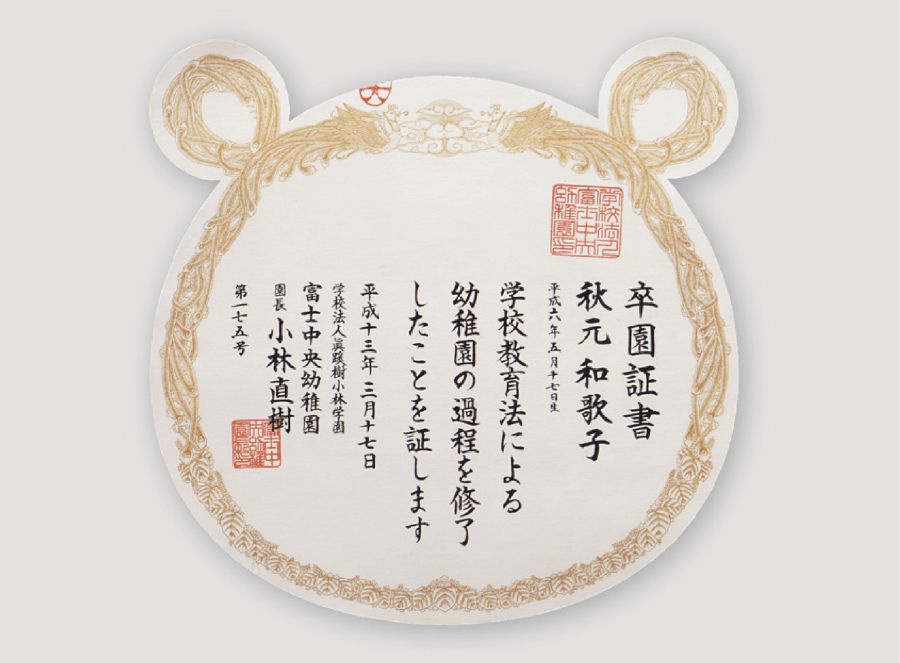 卒園証書
秋元 和歌子
平成六年五月十七日生
学校教育法による
幼稚園の過程を修了
したことを証します
平成十三年三月十七日
学校法人眞蹊樹小林学園
富士中央幼稚園
園長 小林直樹
第一七五号